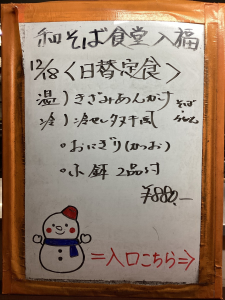 和そば食堂 入福
12/18〈日替定食〉
温)きざみあんかけ そば・うどん
冷)冷せいタヌキ風
・おにぎり(かつお)
・小鉢2品付
¥880.-
=入口こちら⇒